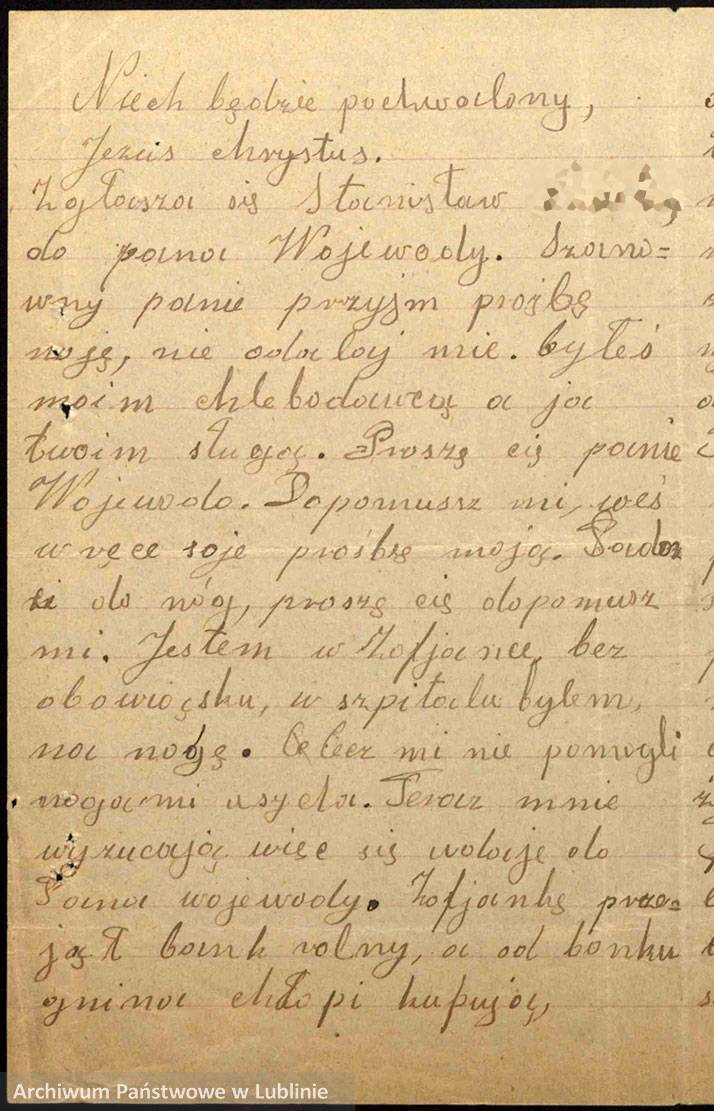 Niech będzie pochwalony,
Jezus chrystus.
Zgłasza się Stanisław
do pana Wojewody. Szano=
wny panie przyjm projbę
moję, nie odalaj mie. byłeś
moim chlebodawcą a ja
twoim sługą. Proszę cię panie
Wojewodo. Dopomusz mi, weś
w ręce soje prośbę moją. Padam
ci do nóg, proszę cię dopomusz
mi. Jestem w Zofjance, bez
obowiąsku, w szpitalu byłem,
na nogę. lecz mi nie pomogli
noga mi uscha. Teraz mnie
wyrzucają więc się udaję do
Pana wojewody. Zofjankę prze=
jął bank rolny, a od banku
gmina chłopi kupują,
Archiwum Państwowe w Lublinie